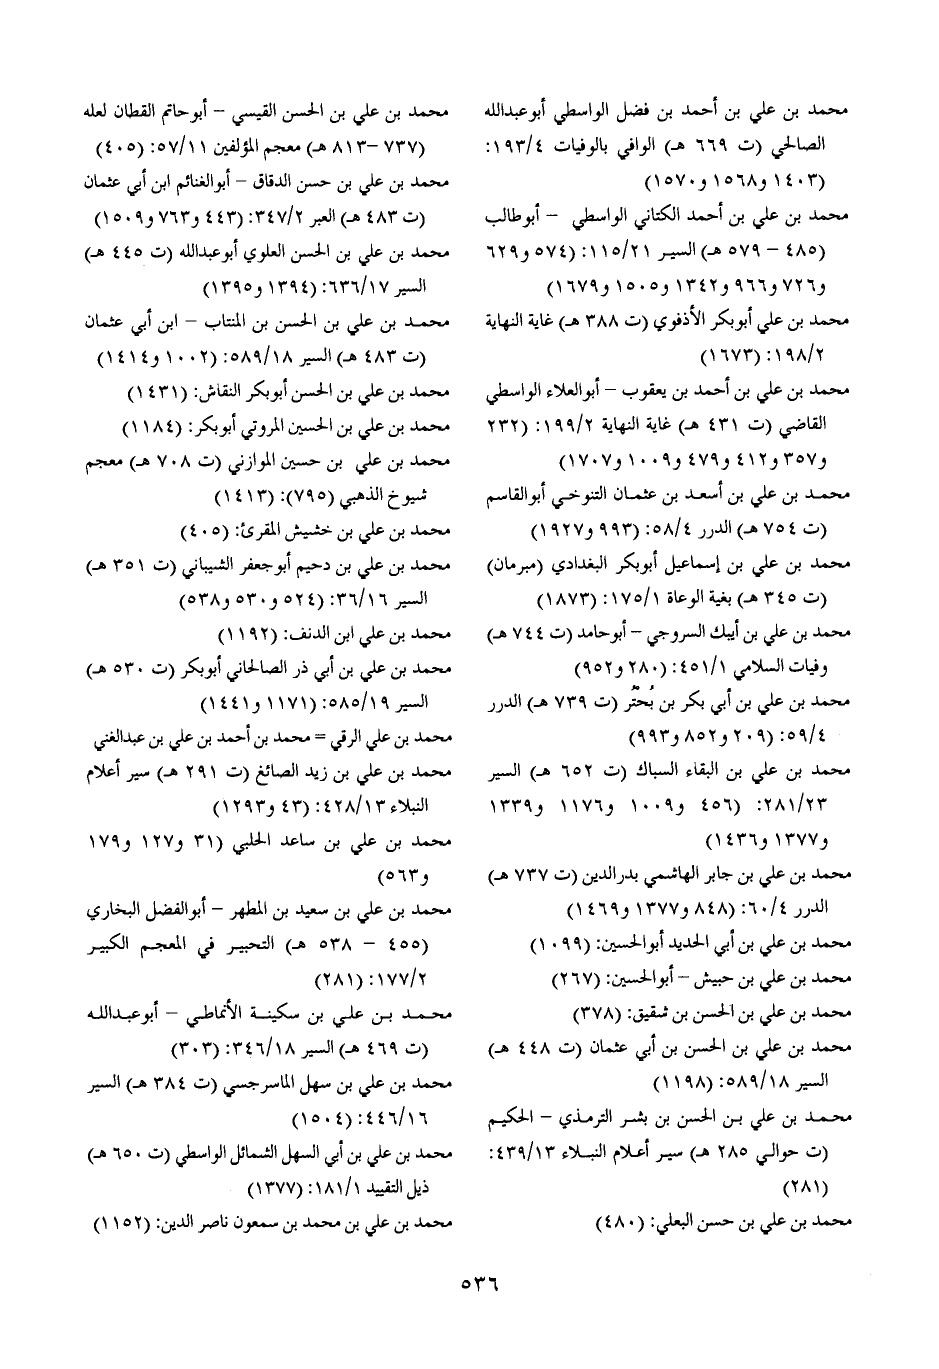 محمد بن علي بن أحمد بن فضل الواسطي أبوعبدالله
الصالحي (ت ٦٦٩ هـ) الوافي بالوفيات ١٩٣/٤:
(١٤٠٣ و١٥٦٨ و١٥٧٠)
محمد بن علي بن أحمد الكتاني الواسطي – أبوطالب
(٤٨٥ – ٥٧٩ هـ) السير ١١٥/٢١: (٥٧٤ و٦٢٩
و٧٢٦ و٩٦٦ و١٣٤٢ و١٥٠٥ و١٦٧٩)
محمد بن علي أبوبكر الأذفوي (ت ٣٨٨ هـ) غاية النهاية
١٩٨/٢: (١٦٧٣)
محمد بن علي بن أحمد بن يعقوب – أبوالعلاء الواسطي
القاضي (ت ٤٣١ هـ) غاية النهاية ١٩٩/٢: (٢٣٢
و٣٥٧ و٤١٢ و٤٧٩ و١٠٠٩ و١٧٠٧)
محمد بن علي بن أسعد بن عثمان التنوخي أبوالقاسم
(ت ٧٥٤ هـ) الدرر ٥٨/٤: (٩٩٣ و١٩٢٧)
محمد بن علي بن إسماعيل أبوبكر البغدادي (مبرمان)
(ت ٣٤٥ هـ) بغية الوعاة ١٧٥/١: (١٨٧٣)
محمد بن علي بن أيبك السروجي – أبوحامد (ت ٧٤٤ هـ)
وفيات السلامي ٤٥١/١: (٢٨٠ و٩٥٢)
محمد بن علي بن أبي بكر بن بُحتُر (ت ٧٣٩ هـ) الدرر
٥٩/٤: (٢٠٩ و٨٥٢ و٩٩٣)
محمد بن علي بن البقاء السباك (ت ٦٥٢ هـ) السير
٢٨١/٢٣: (٤٥٦ و١٠٠٩ و١١٧٦ و١٣٣٩
و١٣٧٧ و١٤٣٦)
محمد بن علي بن جابر الهاشمي بدرالدين (ت ٧٣٧ هـ)
الدرر ٦٠/٤: (٨٤٨ و١٣٧٧ و١٤٦٩)
محمد بن علي بن أبي الحديد أبوالحسين: (١٠٩٩)
محمد بن علي بن حبيش – أبوالحسين: (٢٦٧)
محمد بن علي بن الحسن بن شقيق: (٣٧٨)
محمد بن علي بن الحسن بن أبي عثمان (ت ٤٤٨ هـ)
السير ٥٨٩/١٨: (١١٩٨)
محمد بن علي بن الحسن بن بشر الترمذي – الحكيم
(ت حوالي ٢٨٥ هـ) سير أعلام النبلاء ٤٣٩/١٣:
(٢٨١)
محمد بن علي بن حسن البعلي: (٤٨٠)
محمد بن علي بن الحسن القيسي – أبوحاتم القطان لعله
(٧٣٧ –٨١٣ هـ) معجم المؤلفين ٥٧/١١: (٤٠٥)
محمد بن علي بن حسن الدقاق – أبوالغنائم ابن أبي عثمان
(ت ٤٨٣ هـ) العبر ٣٤٧/٢: (٤٤٣ و٧٦٣ و١٥٠٩)
محمد بن علي بن الحسن العلوي أبوعبدالله (ت ٤٤٥ هـ)
السير ٦٣٦/١٧: (١٣٩٤ و١٣٩٥)
محمد بن علي بن الحسن بن المنتاب – ابن أبي عثمان
(ت ٤٨٣ هـ) السير ٥٨٩/١٨: (١٠٠٢ و١٤١٤)
محمد بن علي بن الحسن أبوبكر النقاش: (١٤٣١)
محمد بن علي بن الحسين المروتي أبوبكر: (١١٨٤)
محمد بن علي بن حسين الموازني (ت ٧٠٨ هـ) معجم
شيوخ الذهبي (٧٩٥): (١٤١٣)
محمد بن علي بن خشيش المقرئ: (٤٠٥)
محمد بن علي بن دحيم أبوجعفر الشيباني (ت ٣٥١ هـ)
السير ٣٦/١٦: (٥٢٤ و٥٣٠ و٥٣٨)
محمد بن علي ابن الدنف: (١١٩٢)
محمد بن علي بن أبي ذر الصالحاني أبوبكر (ت ٥٣٠ هـ)
السير ٥٨٥/١٩: (١١٧١ و١٤٤١)
محمد بن علي الرقي = محمد بن أحمد بن علي بن عبدالغني
محمد بن علي بن زيد الصائغ (ت ٢٩١ هـ) سير أعلام
النبلاء ٤٢٨/١٣: (٤٣ و١٢٩٣)
محمد بن علي بن ساعد الحلبي (٣١ و١٢٧ و١٧٩
و٥٦٣)
محمد بن علي بن سعيد بن المطهر – أبوالفضل البخاري
(٤٥٥ – ٥٣٨ هـ) التحبير في المعجم الكبير
١٧٧/٢: (٢٨١)
محمد بن علي بن سكينة الأنماطي – أبوعبدالله
(ت ٤٦٩ هـ) السير ٣٤٦/١٨: (٣٠٣)
محمد بن علي بن سهل الماسرجسي (ت ٣٨٤ هـ) السير
٤٤٦/١٦: (١٥٠٤)
محمد بن علي بن أبي السهل الشمائل الواسطي (ت ٦٥٠ هـ)
ذيل التقييد ١٨١/١: (١٣٧٧)
محمد بن علي بن محمد بن سمعون ناصر الدين: (١١٥٢)
٥٣٦